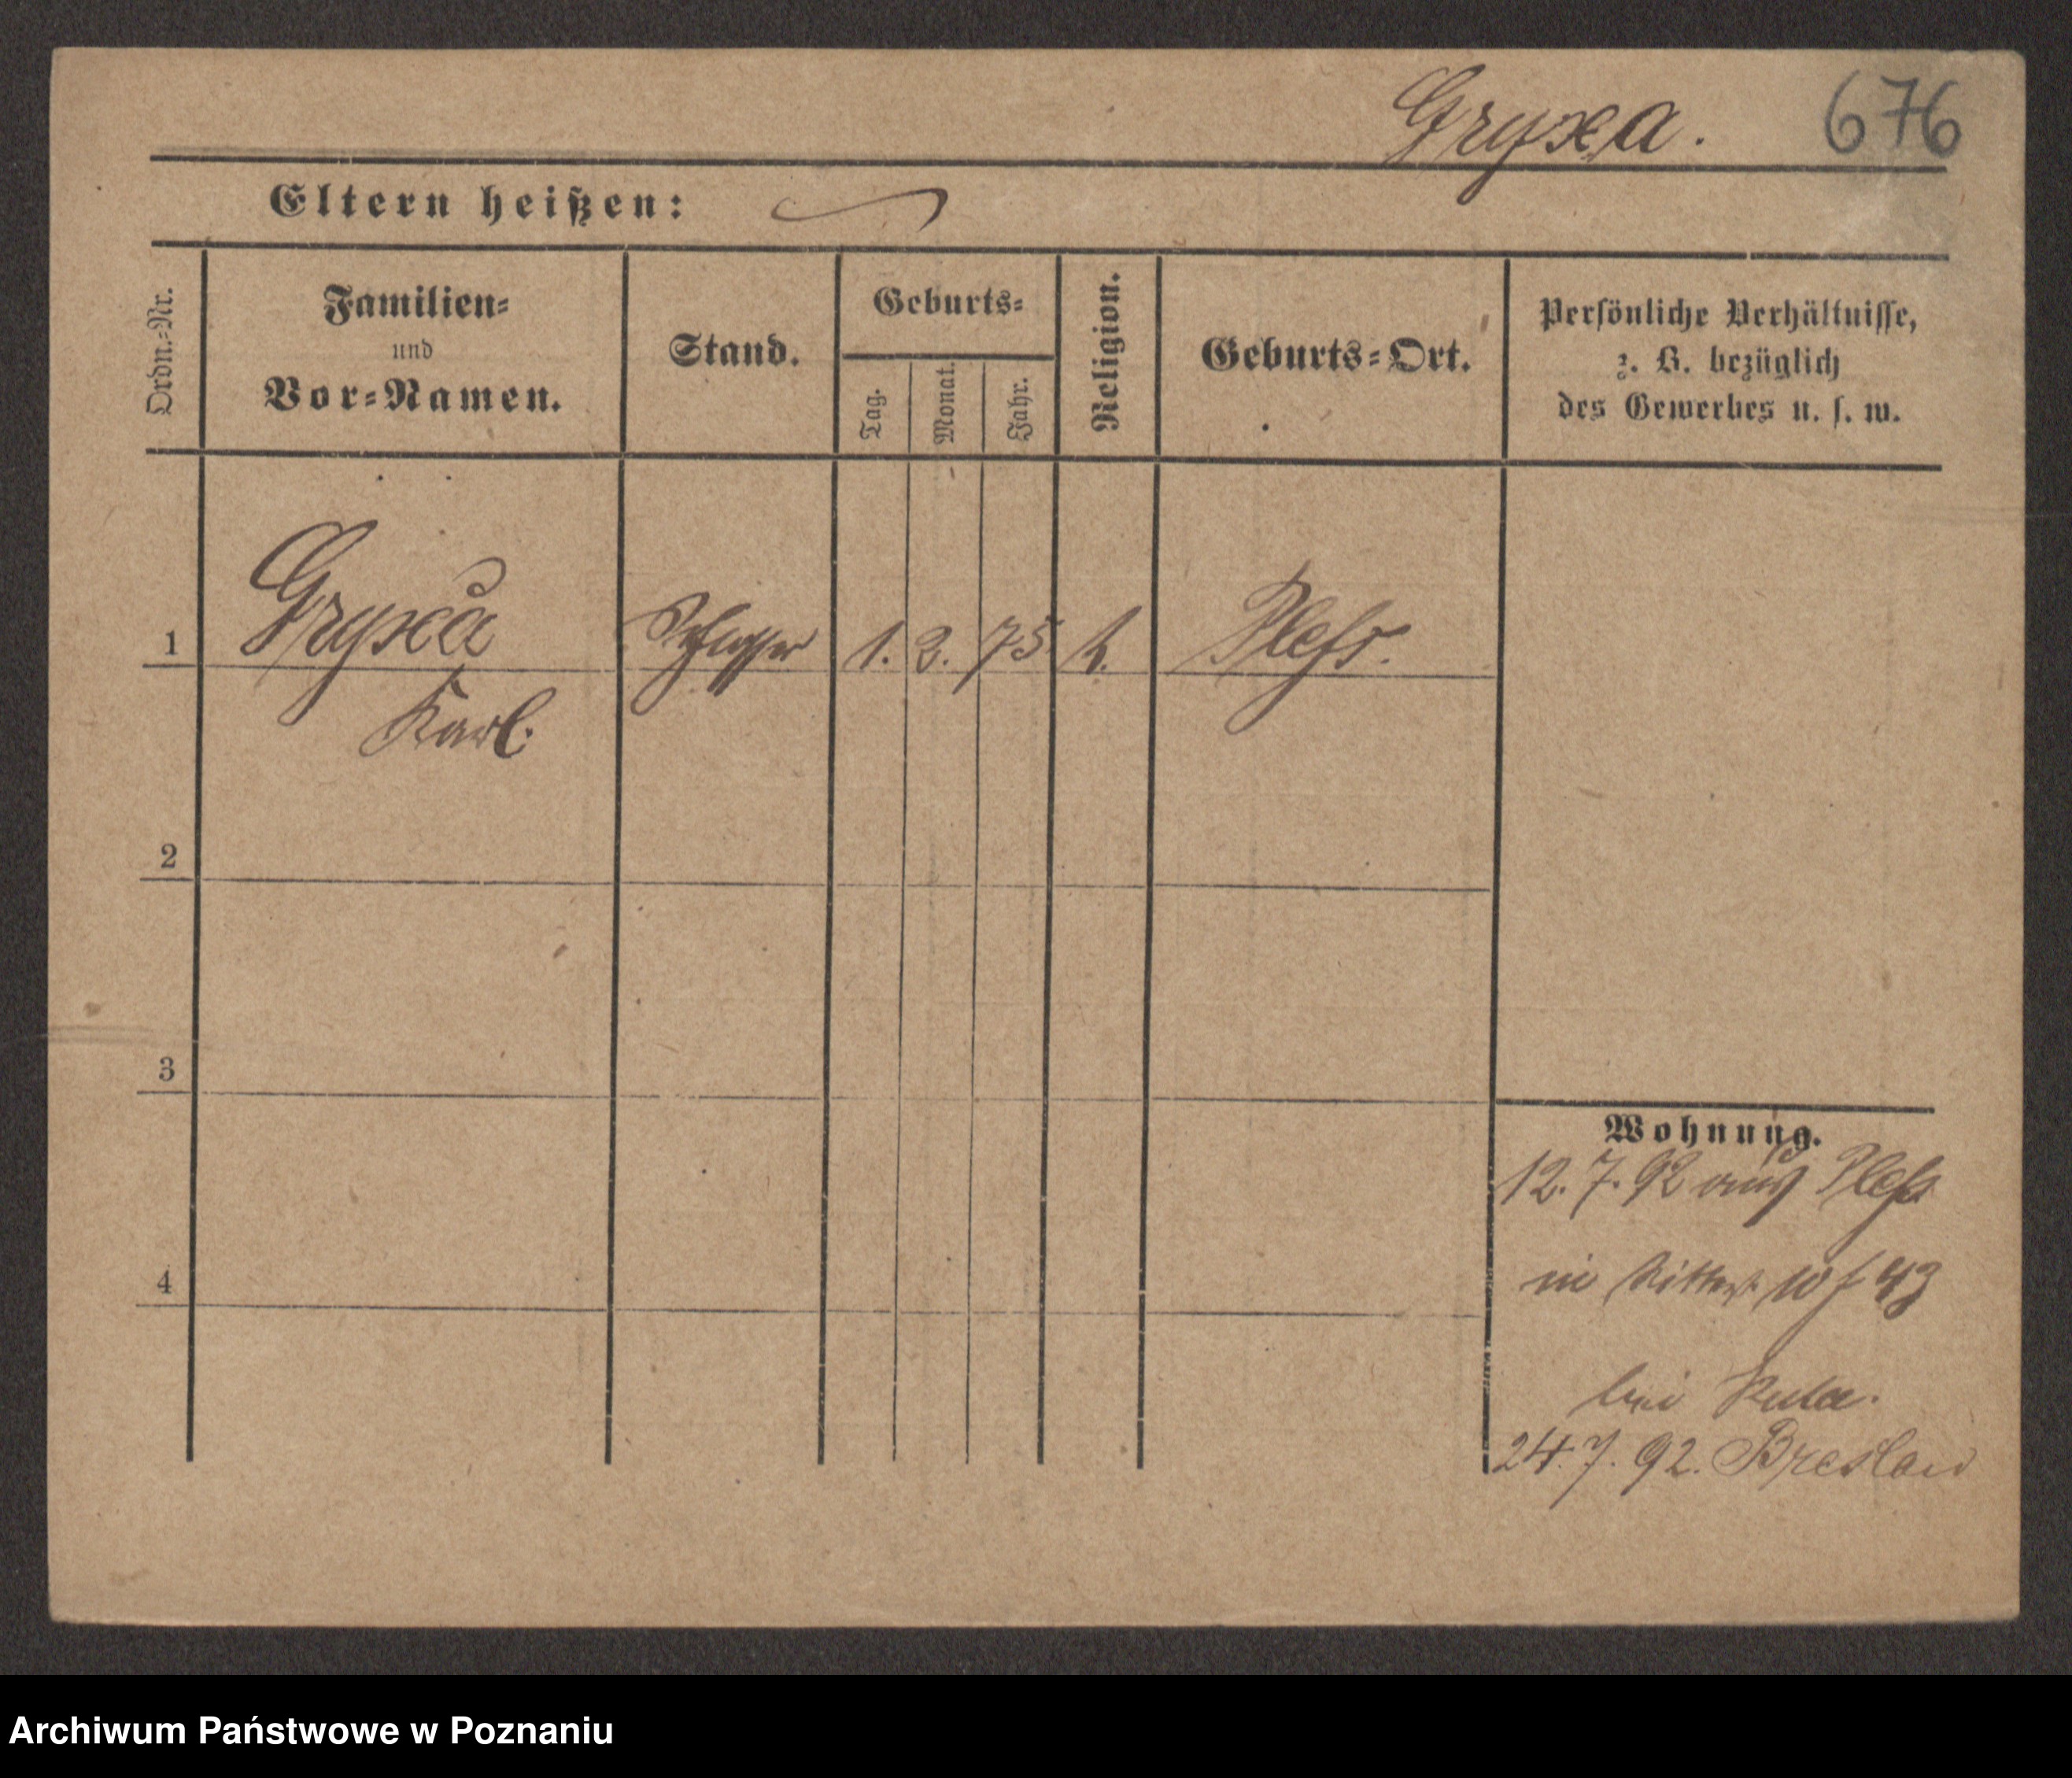 Gryxa. 676
Eltern heißen:
Ordn.-Nr.
Familien-
und
Vor-Namen.
Stand.
Geburts-
Tag.
Monat.
Jahr.
Religion.
Geburts-Ort.
Persönliche Verhältnisse,
z. B. bezüglich
des Gewerbes u. s. w.
1 Gryxa Schlosser 1. 75 k. Pless.
Karl.
2
3
4
Wohnung.
12. 7. 92 aus Pless
in 43
bei
24. 7. 92. Breslau
Archiwum Państwowe w Poznaniu